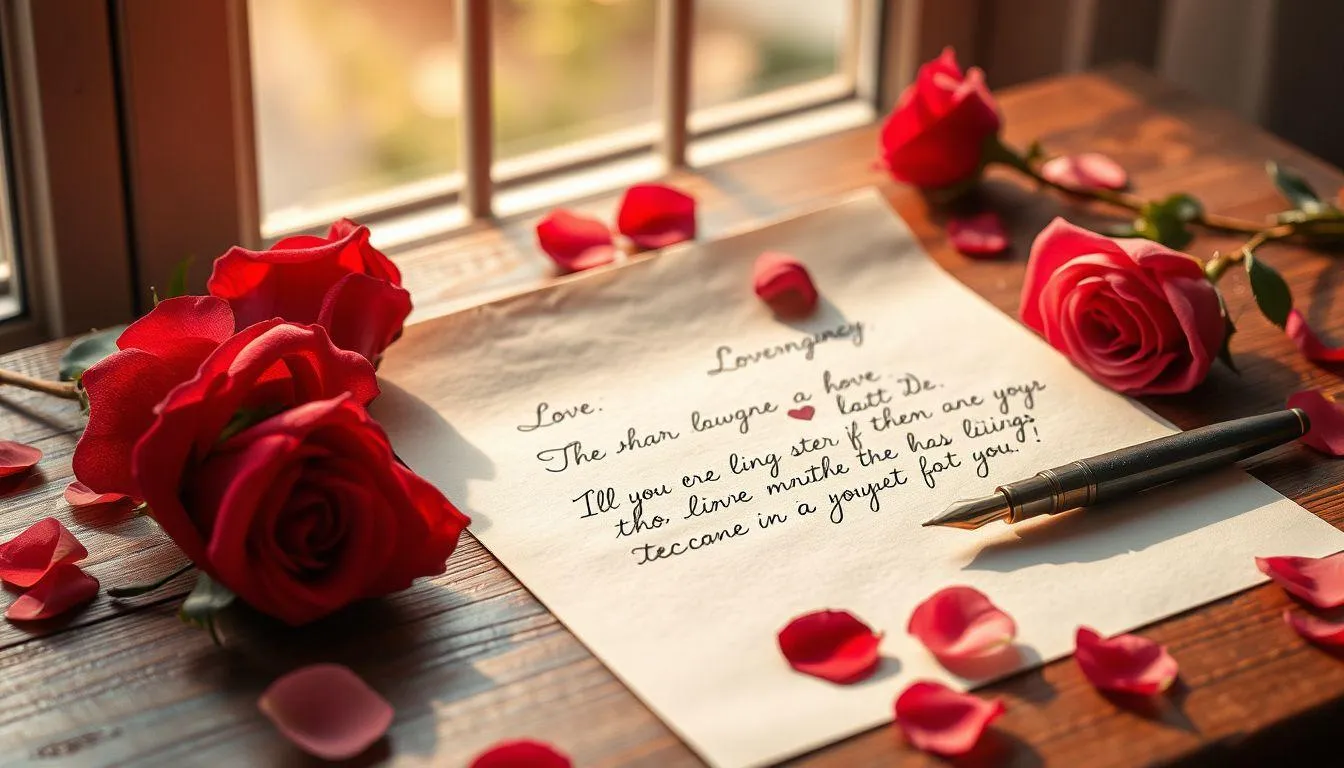 Lovernguncy
Love.
The shan lawgne a hove.
❤ latt De.
Ill you ere ling ster if them are yoyr
tho, linre mnithe the has liiings
teccane in a yoyyet fot you.!